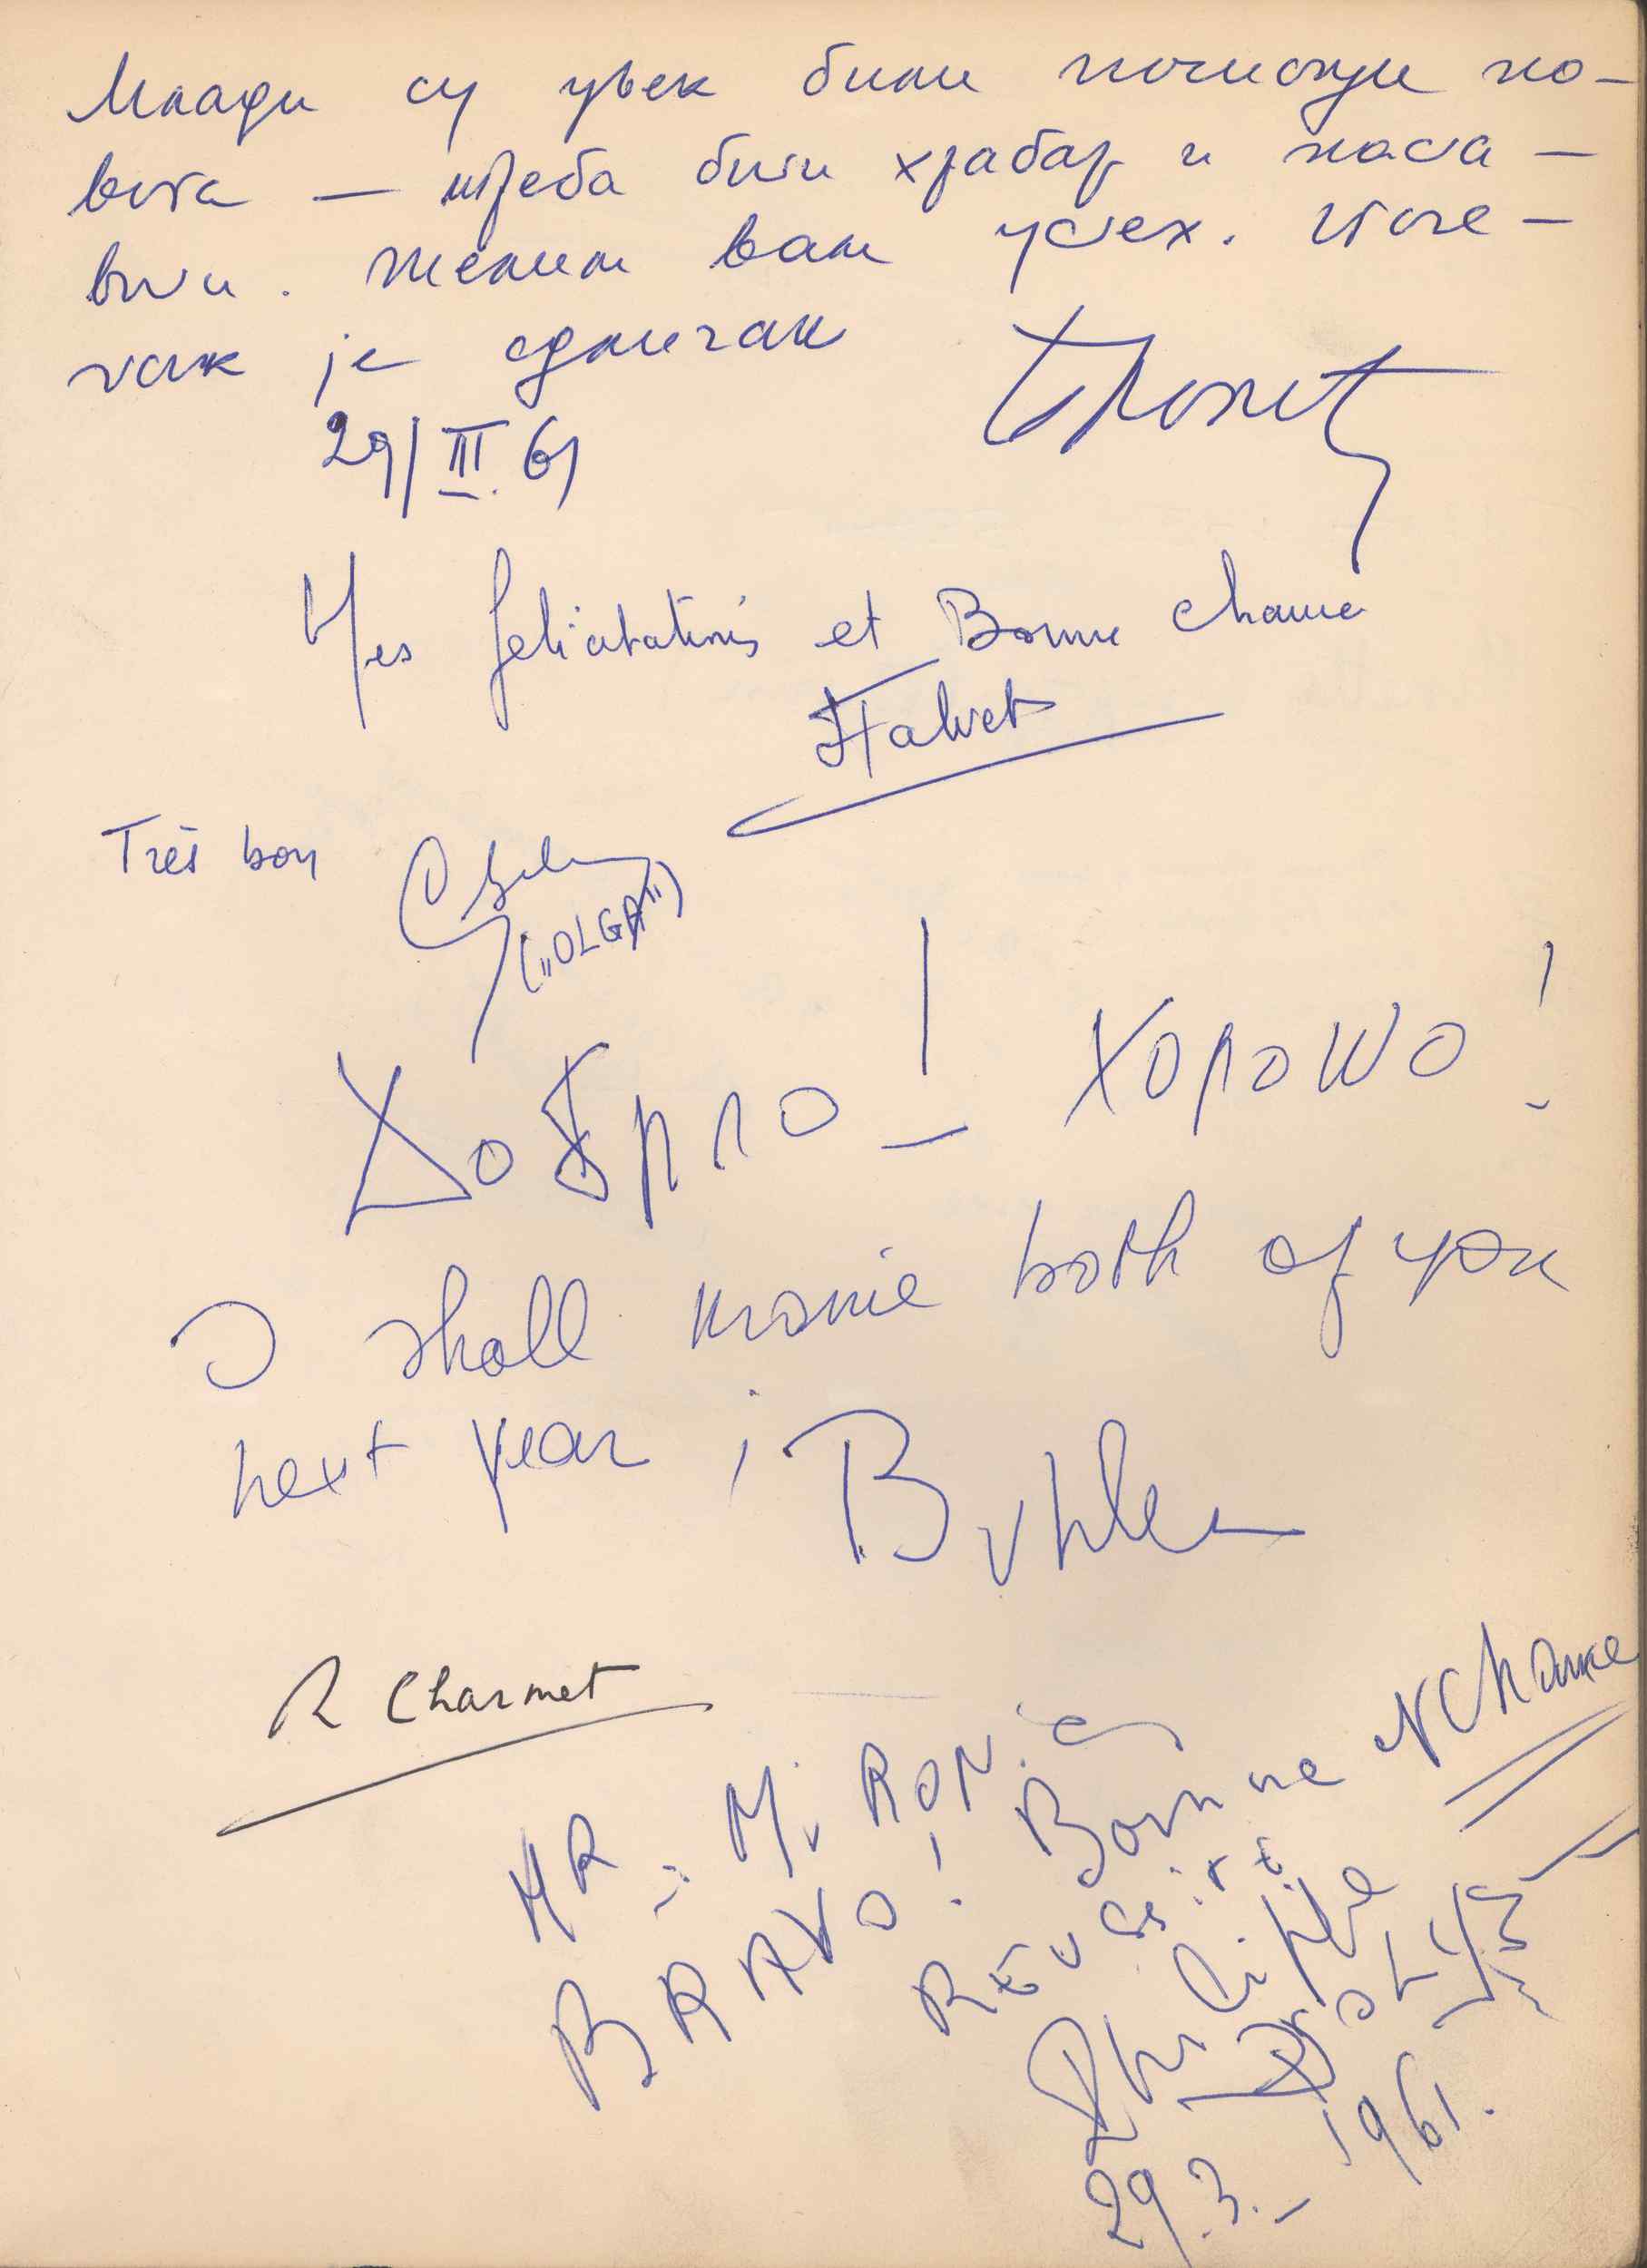 Млади су увек били почетци но-
вога — треба бити храбар и наста-
вити. Желим вам успех. Поче-
так је одличан
29/III.61
Mes felicitations et Bonne chance
Très bon
("OLGA")
Добрло! Хорошо!
I shall kronie both of you
next year!
Buhler
R Charmet
MR. M. RONić
BRAVO! Bonne Chance
RÉUSSITE
Philippe
29.3. 1961.